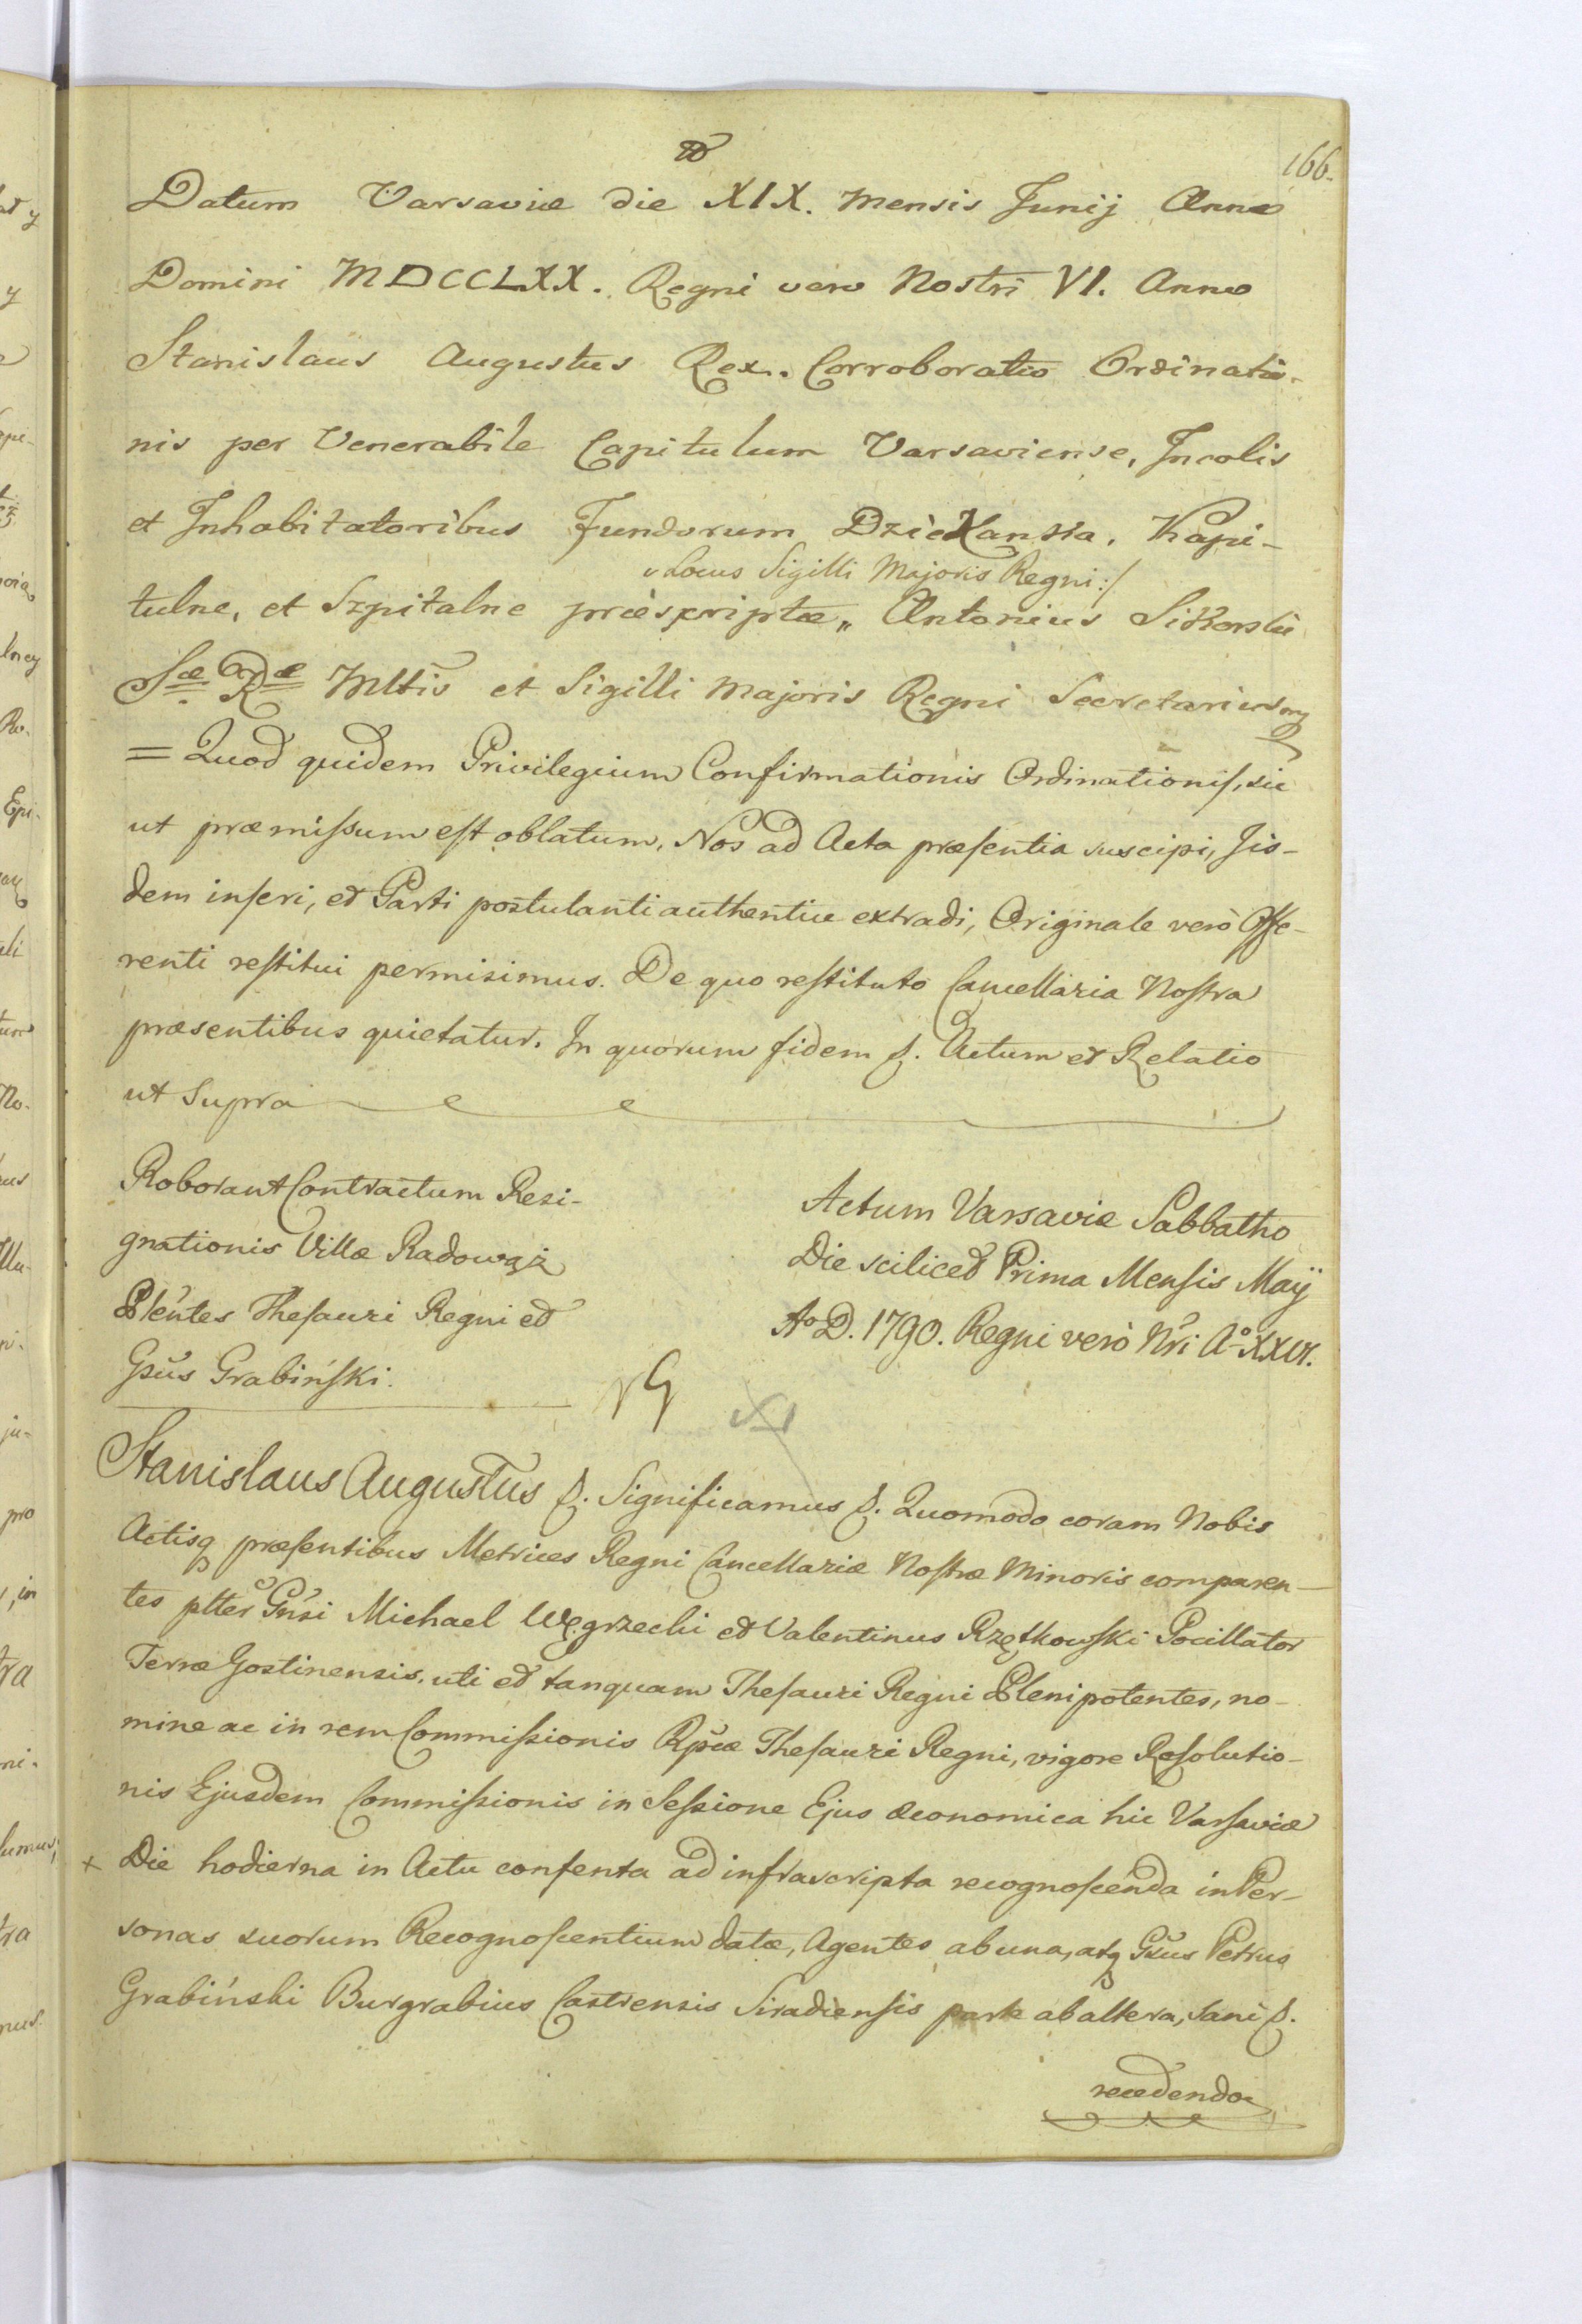 166.
Datum Varsaviæ die XIX. Mensis Junij Anno
Domini MDCCLXX. Regni vero Nostri VI. Anno
Stanislaus Augustus Rex. Corroboratio Ordinatio-
nis per Venerabile Capitulum Varsaviense, Incolis
et Inhabitatoribus Fundorum Dziekanska, Kapi-
Locus Sigilli Majoris Regni:/
tulne, et Szpitalne præscriptæ„ Antonius Sikorski
Sæ Ræ Mttis et Sigilli Majoris Regni Secretarius
= Quod quidem Privilegium Confirmationis Ordinationis, sic
ut præmissum est oblatum, Nos ad Acta præsentia suscipi, Iis-
dem inseri, et Parti postulanti authentice extradi, Originale verò Offe-
renti restitui permisimus. De quo restituto Cancellaria Nostra
præsentibus quietatur. In quorum fidem &. Actum et Relatio
ut Supra
Roborant Contractum Resi-
gnationis Villæ Radowąż
Plentes Thesauri Regni et
Gsus Grabiński.
Actum Varsaviæ Sabbatho
Die scilicet Prima Mensis Maij
Ao D. 1790. Regni verò Nri Ao XXVI.
Stanislaus Augustus &. Significamus &. Quomodo coram Nobis
Actisq præsentibus Metrices Regni Cancellariæ Nostræ Minoris comparen-
tes pltter Gnsi Michael Węgrzecki et Valentinus Rzętkowski Pocillator
Terræ Gostinensis, uti et tanquam Thesauri Regni Plenipotentes, no-
mine ac in rem Commissionis Rpcæ Thesauri Regni, vigore Resolutio-
nis Ejusdem Commissionis in Sessione Ejus œconomica hic Varsaviæ
x Die hodierna in Actu consenta ad infrascripta recognoscenda in Per-
sonas suorum Recognoscentium datæ, Agentes ab una, atq Gsus Petrus
Grabiński Burgrabius Castrensis Siradiensis parte ab altera, Sani &.
recedendo